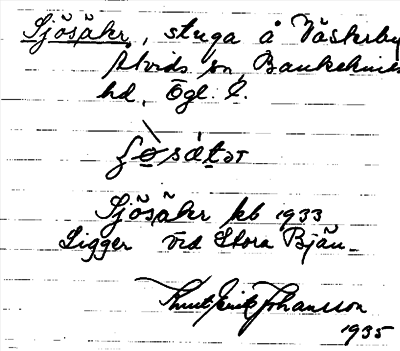 Sjösäkr, stuga å Västerby
Åtvids sn, Bankekinds
hd, Ögl. l.
Sjösäkr kb 1933
Ligger vid Stora Bjän-
Knut Erik Johansson
1935